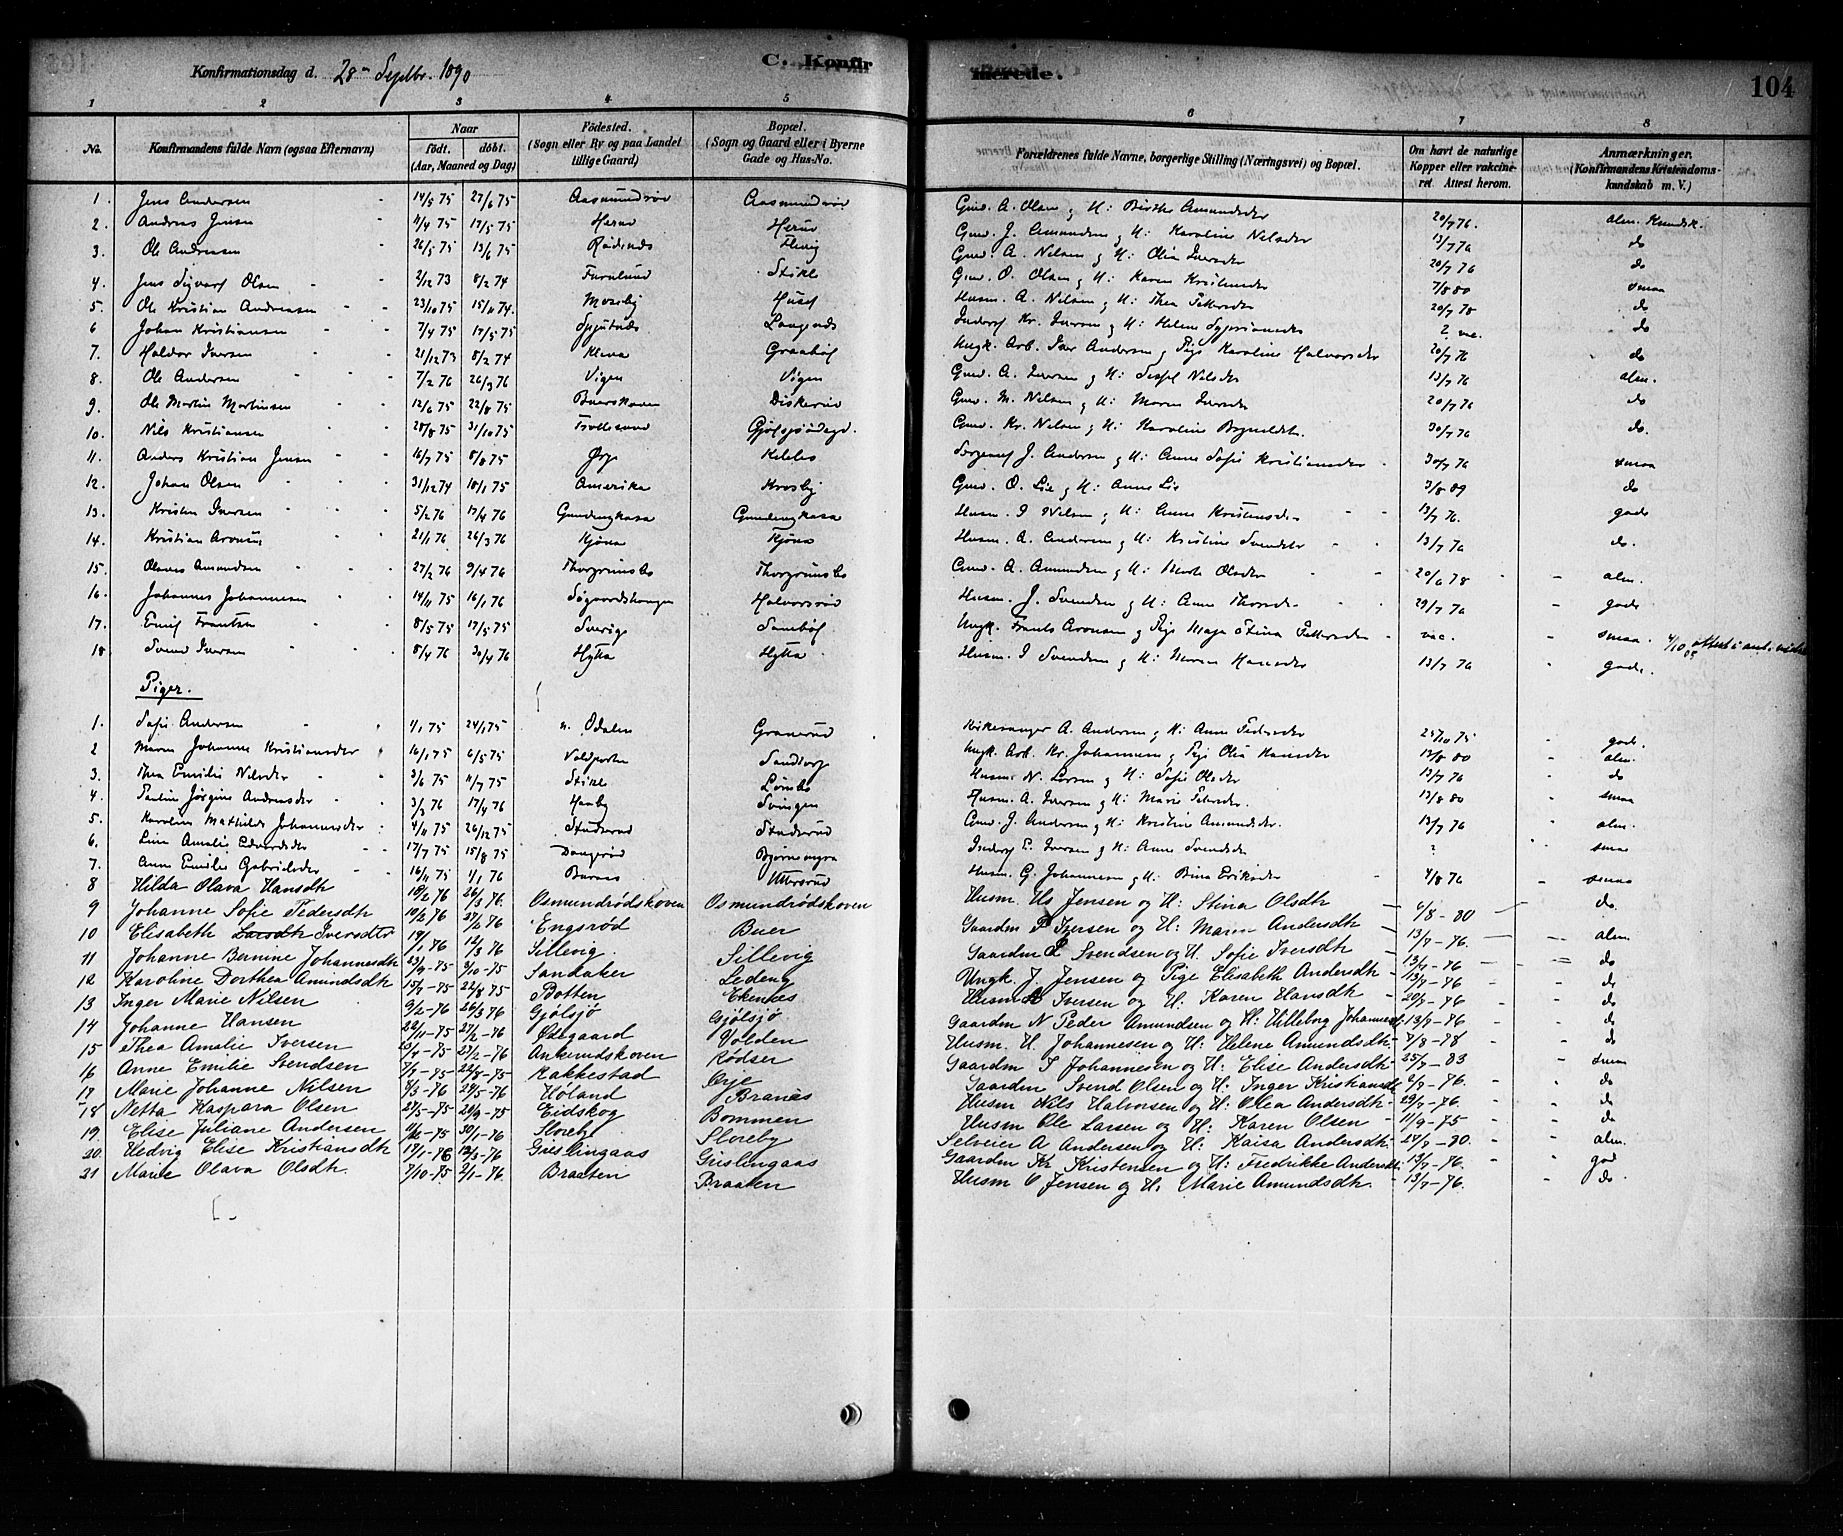 Konfirmationsdag d. 28de Septbr. 1890 C. Konfirmerede. 104
1 2 3 4 5 6 7 8
No. Konfirmandens fulde Navn (ogsaa Efternavn) Naar födt. döbt. (Aar, Maaned og Dag) Födested. (Sogn eller By og paa Landet tillige Gaard) Bopæl. (Sogn og Gaard eller i Byerne Gade og Hus-No. Forældrenes fulde Navne, borgerlige Stilling (Næringsvei) og Bopæl. Om havt de naturlige Kopper eller vakcineret Attest herom. Anmærkninger. (Konfirmandens Kristendomskundskab m. V.)
1. Jens Andersen 14/5 75 27/6 75 Aasmundrød Aasmundrød Gmd. A. Olsen og H: Birthe Amundsdtr 20/7 76. alm. Kundsk.
2. Andreas Jensen 4/4 75 17/5 75 Herud Herud Gmd. J. Amundsen og H: Karoline Nilsdtr 13/7 76 do
3. Ole Andreasen 26/5 75 13/6 75 Rødenæs Gmd. A. Nilsen og H: Olia Iversdtr 20/7 76 do
4. Jens Sigvart Olsen 2/12 73 8/2 74 Furulund Stikle Gmd. O. Olsen og H: Karen 7/8 80 smaa
5. Ole Kristian Andreasen 23/10 75 15/11 74. Moseby Husm. A. Nilsen og H: Thea Pettersdtr 20/7 78 do
6 Johan Kristiansen 7/4 75 17/5 75 Langenæs Inderst Kr. Iversen og H: Helene 2. vac. do
7. Haldor Iversen 21/12 73 8/2 74 Kleva Graabøl Ungk. Arb. Iver Andersen og Pige Karoline Halvorsdtr 20/7 76 do
8. Ole Andersen 7/2 76 26/3 76 Vigen Vigen Gmd. A. Iversen og H: Nilsdtr 13/7 76 alm.
9. Ole Martin Martinsen 12/6 75 22/8 75 Buerskoven Diskerud Gmd. M. Nilsen og H: Maren Iversdtr 20/7 76 do
10. Nils Kristiansen 28/8 75 31/10 75 Trollesund Gmd. Kr. Nilsen og H: Karoline 30/7 76 do.
11. Anders Kristian Jensen 16/7 75 8/8 75 Ørje J. Andersen og H: Anne Sofie Kristiansdtr 30/7 76 smaa
12. Johan Olsen 31/12 74 10/1 75 Amerika Krosby Gmd. O. Lie og H: Anne Lie 3/8 89 do
13. Kristen Iversen 5/2 76 17/4 76 Gundengkasa Gundengkasa Husm. I Nilsen og H: Anne Kristensdtr 13/7 76. gode
14. Kristian 21/1 76 26/3 76 Kjøna Kjøna Husm. A. Andersen og H: Kristine Svendsdtr 13/7 76 do.
15. Olaves Amundsen 27/2 76 9/4 76 Thorgrimsbo Thorgrimsbo Gmd. A. Amundsen og H: Olsdtr 20/6 78 alm.
16. Johannes Johannesen 14/11 75 16/1 76 Søgaardshaugen Halvorsrød Husm. J. Svendsen og H: Anne 29/7 76 gode
17. Emil Frantsen 8/5 75 17/5 75 Sverige Sambøl Ungk. Frants Aronsen og Pige Maja Stina Pettersdtr vac. smaa. 4/10 05 attest i
18 Svend Iversen 8/4 76 30/4 76 Hytta Hytta Husm. I Svendsen og H: Maren Hansdtr 13/7 76 gode.
Piger.
1. Sofie Andersen 1/1 75 24/1 75 n. Odalen Granerud Kirkesanger A. Andersen og H: Anne Pedersdtr 25/10 75 gode.
2 Maren Johanne Kristiansdtr 16/1 75 6/5 75 Sandtorp Ungk. Arb. Kr. Johannesen og Pige Olia Hansdtr 13/8 80 alm.
3. Thea Emilie Nilsdtr 3/6 75 11/7 75 Stikle Husm. N. Larsen og H: Sofie Olsdtr 13/7 76 do
4. Pauline Jørgine Andreasdtr 3/3 76 17/4 76 Haaby Svingen Husm. A. Iversen og H: Marie Pettersdtr. 13/8 80 smaa
5. Karoline Mathilde Johannesdtr 4/11 75 26/12 75 Studerud Studerud Gmd. J. Andersen og H: Kristine Amundsdtr. 13/7 76 alm.
6. Lina Amalie Edvardsdtr 17/7 75 15/8 75 Dangerød Bjørnemyra Inderst E. Iversen og H: Anne Svendsdtr ? smaa
7. Anne Emilie Gabrielsdtr 16/11 75 1/1 76 Buraas Uttersrud Husm. G. Johannesen og H: Bina Eriksdtr 4/8 76 smaa
8 Hilda Olava Hansdtr 18/2 76 26/3 76. Osmundrødskoven Osmundrødskoven Husm. Hs Jensen og H: Stina Olsdtr 6/8 - 80 do.
9 Johanne Sofie Pedersdtr 10/2 76 27/2 76 Engsrød Buer Gaardm P Iversen og H: Maren Andersdtr 13/7 - 76. alm.
10 Elisabeth Larsdtr Iversdtr 19/1 76 12/3 76 Sillevig Sillevig Gaardm Svendsen og H. Sofie Iversdtr 13/7 - 76 do
11 Johanne Bernine Johannesdtr 23/9 - 75 3/10 - 75 Sandaker Ledeng Ungk. J. Jensen og Pige Elisabeth Andersdtr 13/7 - 76 do
12 Karoline Dorthea Amundsdtr 15/7 - 75 22/8 75 Botten Ekenæs Husm A Iversen og H. Karen Hansdtr 20/7 - 76 do
13 Inger Marie Nilsen 9/2 - 76 26/3 76 Gjølsjø Gjølsjø Gaardm N Peder Amundsen og H: Hilleborg Johannesdtr 13/7 - 76 do
14 Johanne Hansen 22/11 - 75 27/2 - 76 Østgaard Volden Husm. H. Johannesen og H: Helene Amundsdtr. 7/8 - 78 do
15 Thea Amalie Iversen 25/4 - 75 27/2 - 76 Ankerudskoven Rødser Gaardm I Johannesen og H: Elise Andersdtr 25/7 - 83 smaa
16 Anne Emilie Svendsen 7/7 - 75 22/8 - 75 Rakkestad Ørje Gaardm Svend Olsen og H: Inger Kristiansdtr 6/7 - 76. do
17 Marie Johanne Nilsen 8/3 - 76 24/5 - 76 Høland Branæs Husm Nils Halvorsen og H: Olea Andersdtr 29/7 - 76 do
18 Netta Kaspara Olsen 27/5 - 75 20/9 - 75 Eidskog Bommen Husm Ole Larsen og H: Karen Olsen 11/9 - 75 do
19. Elise Juliane Andersen 11/12 - 75 30/1 - 76 Sloreby Sloreby Selveier A Andersen og H: Kaisa Andersdtr. 27/7 - 80. alm.
20. Hedvig Elise Kristiansdtr 17/1 - 76 12/3 - 76 Grislingaas Grislingaas Gaardm Kr Kristensen og H: Fredrikke Andersdtr 13/7 - 76. god
21 Marie Olava Olsdtr. 7/10 - 75 2/1 - 76. Braaten Braaten Husm O Jensen og H. Marie Amundsdtr. 13/7 - 76. do